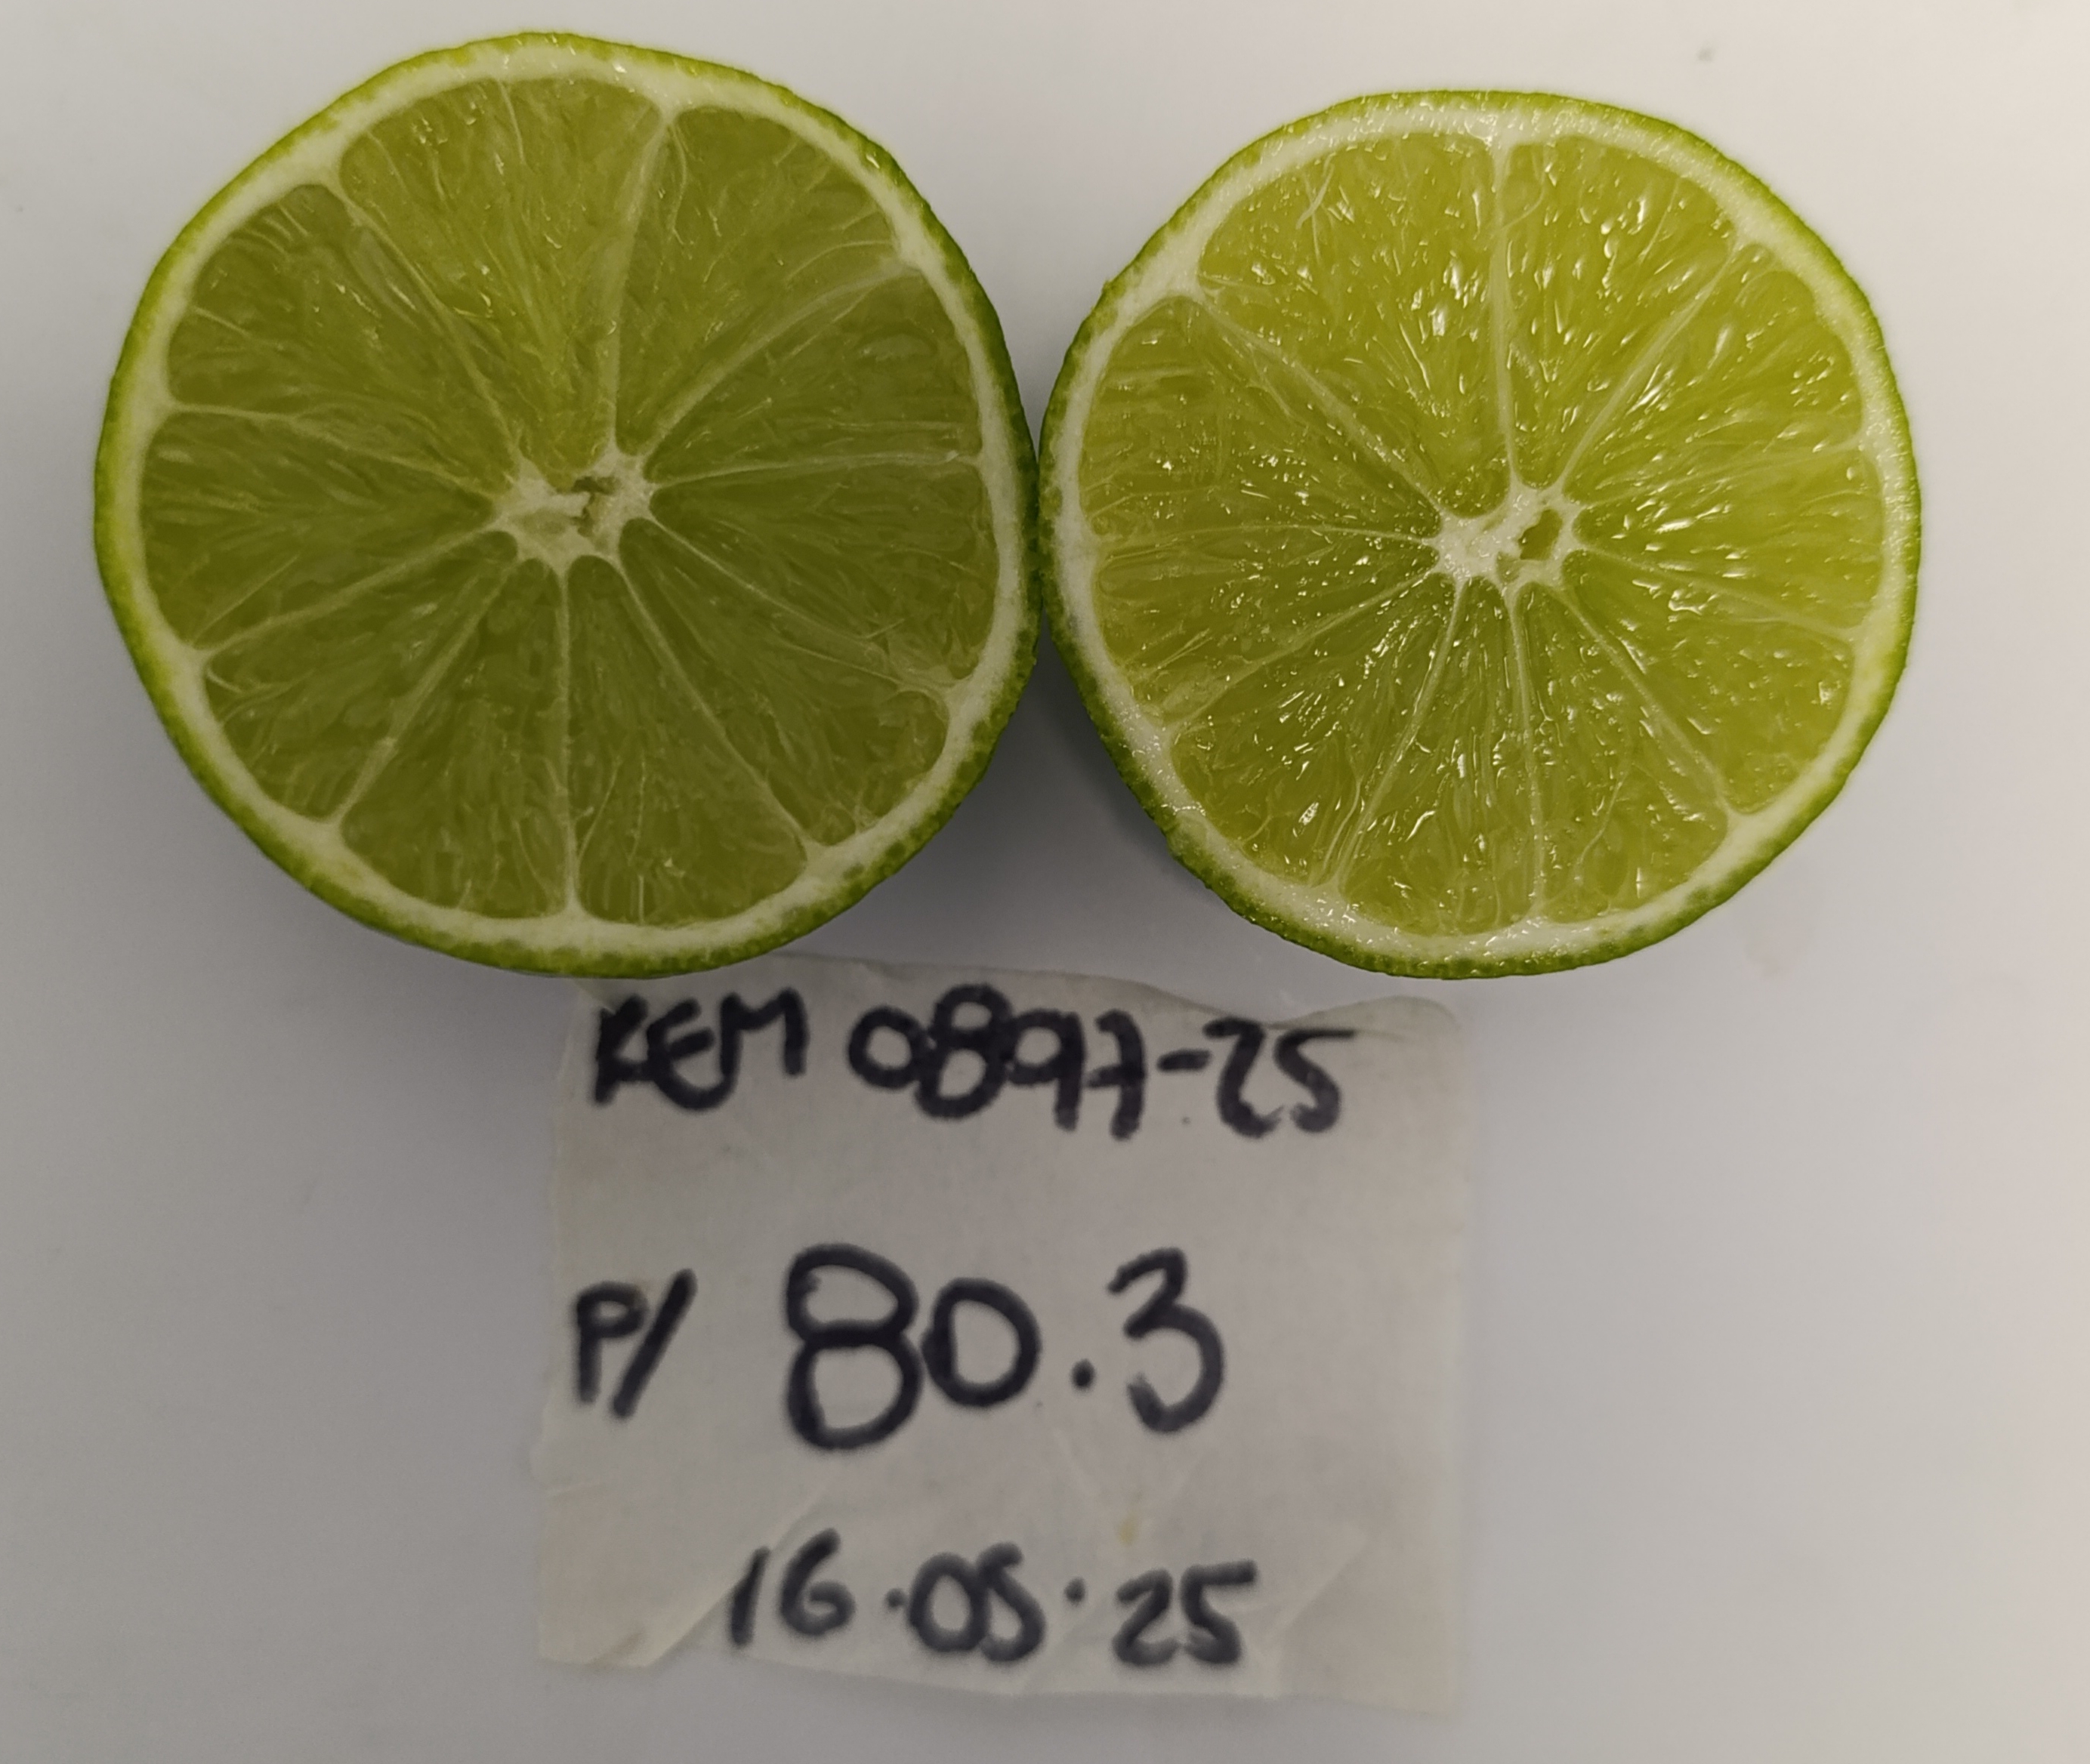 REM 0897-25
P/ 80.3
16.05.25